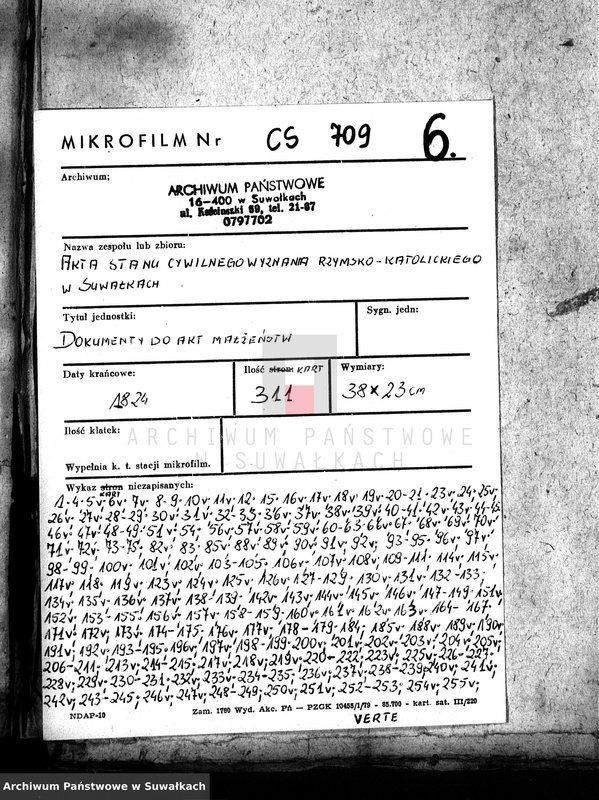 MIKROFILM Nr CS 709 6.
Archiwum;
ARCHIWUM PAŃSTWOWE
16-400 w Suwałkach
ul. Kościuszki 69, tel. 21-67
0797702
Nazwa zespołu lub zbioru:
AKTA STANU CYWILNEGO WYZNANIA RZYMSKO-KATOLICKIEGO
W SUWAŁKACH
Tytuł jednostki: Sygn. jedn:
DOKUMENTY DO AKT MAŁŻEŃSTW
Daty krańcowe: Ilość stron: KART Wymiary:
1824 311 38 x 23 cm
Ilość klatek:
Wypełnia k. t. stacji mikrofilm.
ARCHIWUM PAŃSTWOWE
W SUWAŁKACH
Wykaz stron niezapisanych:
KART
1·4·5v; 6v· 7v· 8-9· 10v· 11v· 12· 15· 16v· 17v· 18v· 19v· 20-21· 23v· 24; 25v;
26v· 27v· 28-29· 30v· 31v· 32·33· 36v· 37v· 38v· 39v· 40-41· 42v· 43v· 44-45
46v· 47v· 48-49· 51v· 54· 56v· 57v· 58v· 59v· 60-63· 66v· 67· 68v· 69v· 70v·
71v· 72v· 73-75· 82v· 83· 85v· 88v· 89v· 90v· 91v; 92v; 93-95· 96v· 97v·
98-99· 100v· 101v· 102v· 103-105· 106v· 107v· 108v; 109-111· 114v· 115v·
117v; 118· 119v· 123v· 124v· 125v; 126v· 127-129· 130v· 131v· 132-133;
134v· 135v· 136v· 137v· 138-139· 142v· 143v; 144v· 145v· 146v· 147-149· 151v·
152v· 153-155· 156v· 157v· 158-159· 160v· 161v· 162v· 163v· 164-167·
171v· 172v; 173v· 174-175· 176v· 177v· 178-179· 184; 185v· 188v· 189v· 190v·
191v; 192v· 193-195· 196v; 197v· 198-199· 200v; 201v· 202v· 203v; 204v· 205v;
206-211; 213v; 214-215; 217v; 218v; 219v; 220-222; 223v; 225v; 226-227;
228v; 229v· 230-231; 232v; 233v; 234-235; 236v; 237v; 238-239; 240v; 241v;
242v; 243-245; 246v; 247v; 248-249; 250v; 251v; 252-253; 254v; 255v;
NDAP-10 Zam. 1780 Wyd. Akc. Pń — PZGK 10455/1/79 - 85.700 - kart. sat. III/220
VERTE
Archiwum Państwowe w Suwałkach